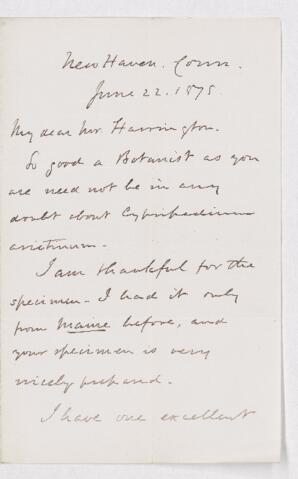 New Haven. Conn.
June 22. 1878.
My dear Mr. Harrington.
So good a Botanist as you
are need not be in any
doubt about Cypripedium
arietinum.
I am thankful for the
specimen - I had it only
from Maine before, and
your specimen is very
nicely prepared.
I have one excellent